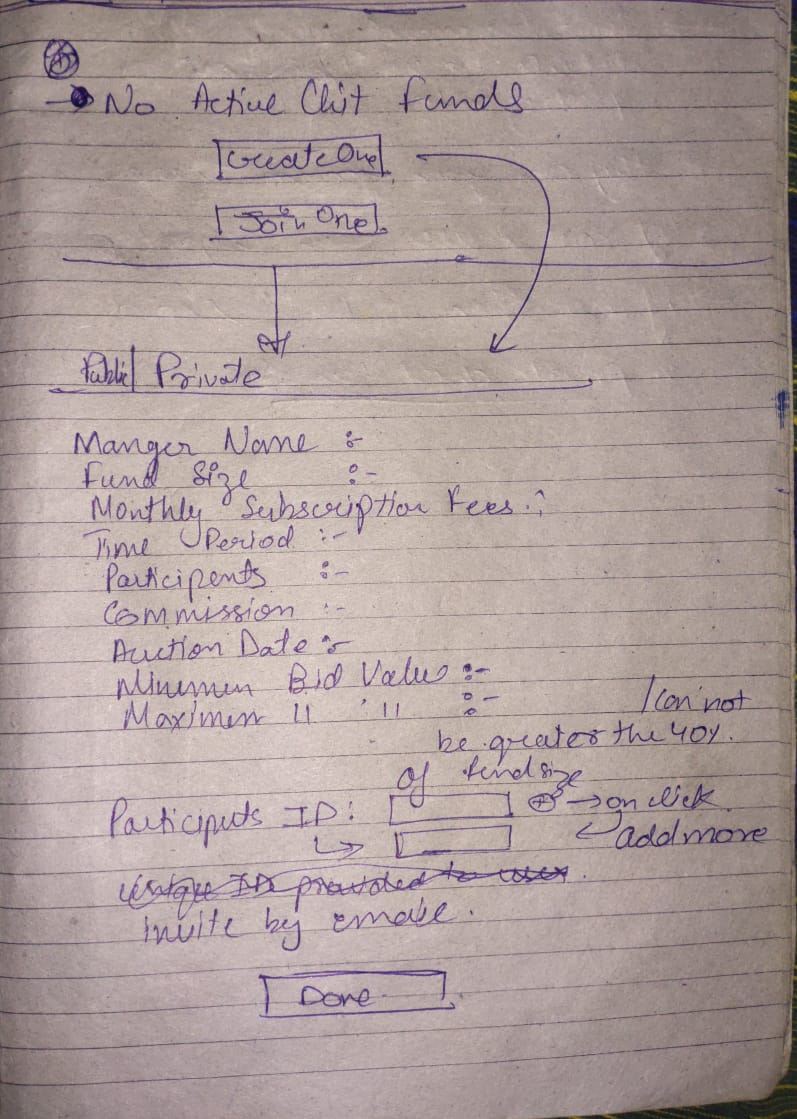 → No Active Chit funds
Create One
Join One
Public | Private
Manger Name :-
Fund Size :-
Monthly Subscription Fees :-
Time Period :-
Participents :-
Commission :-
Auction Date :-
Minimum Bid Value :-
Maximem " " :- / Can not
be greater the 40%.
of fund size
Participants ID: ⊕ → on click
↳ add more
Unique ID provided to user.
invite by email.
Done